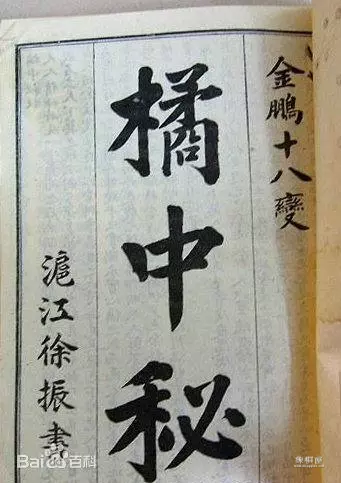 金鵬十八變
橘中秘
滬江徐振書
Bai百科